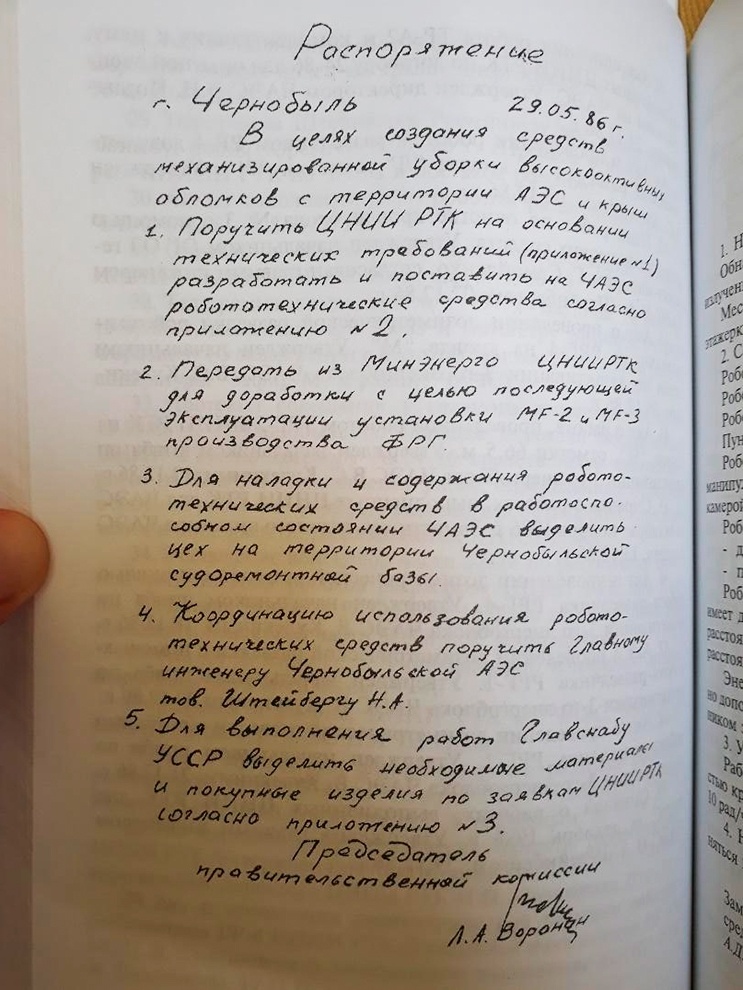 Распоряжение
г. Чернобыль 29.05.86 г.
В целях создания средств
механизированной уборки высокоактивных
обломков с территории АЭС и крыш
1. Поручить ЦНИИ РТК на основании
технических требований (приложение №1)
разработать и поставить на ЧАЭС
робототехнические средства согласно
приложению №2.
2. Передать из Минэнерго ЦНИИРТК
для доработки с целью последующей
эксплуатации установки MF-2 и MF-3
производства ФРГ.
3. Для наладки и содержания робото-
технических средств в работоспо-
собном состоянии ЧАЭС выделить
цех на территории Чернобыльской
судоремонтной базы.
4. Координацию использования робото-
технических средств поручить Главному
инженеру Чернобыльской АЭС
тов. Штейбергу Н.А.
5. Для выполнения работ Главснабу
УССР выделить необходимые материалы
и покупные изделия по заявкам ЦНИИРТК
согласно приложению №3.
Председатель
правительственной комиссии
Л.А. Воронин
1. Н
Обн
излучени
Мес
этажерк
2. С
Робо
Робо
Робо
Пун
Роб
манипул
камерой
Роб
- д
- п
Роб
имеет д
расстоя
расстоя
Эне
но допо
ником э
3. У
Раб
стью кр
10 рад/
4. Н
няться
Зам
сред
А.Д